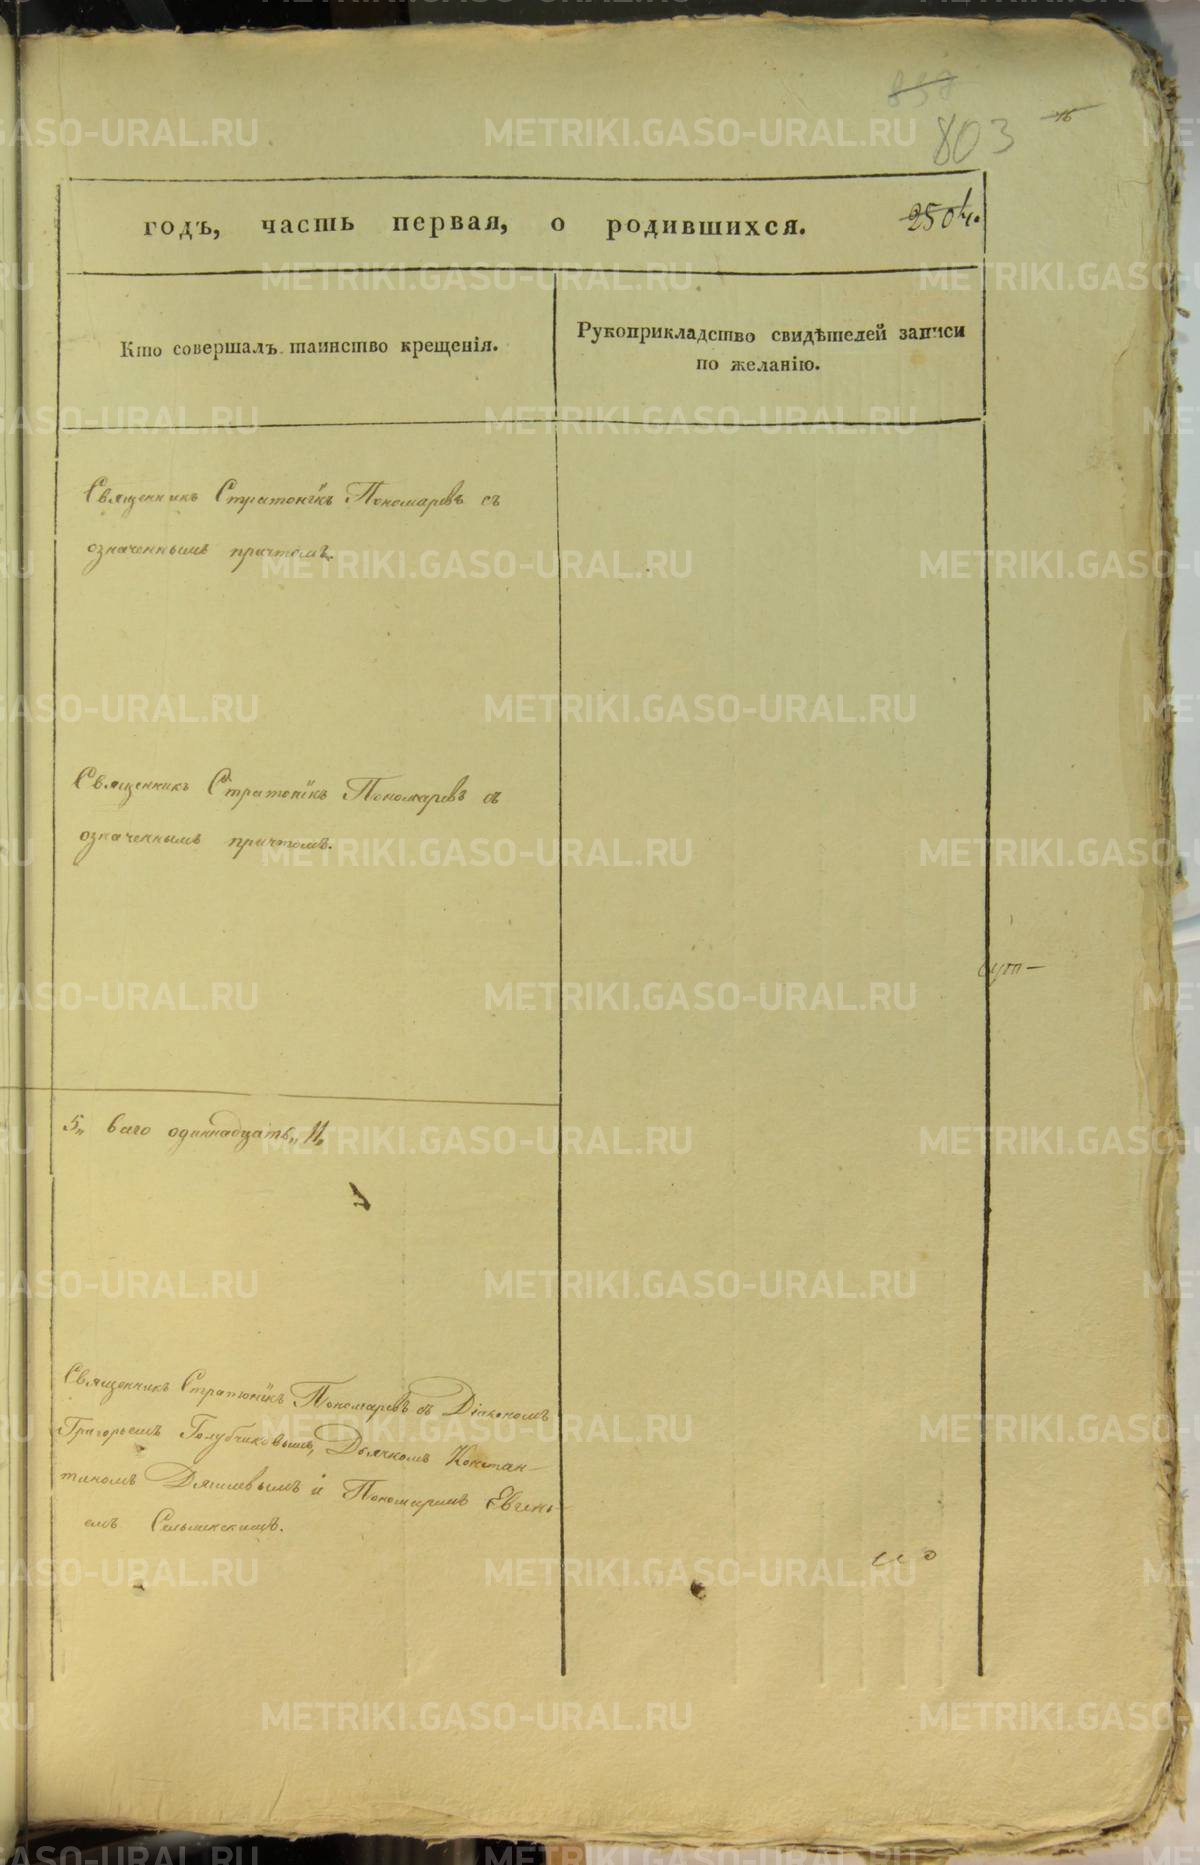 803
годъ, часть первая, о родившихся.
Кто совершалъ таинство крещенія.
Рукоприкладство свидѣтелей записи
по желанію.
Священникъ Стратоникъ Пономаревъ съ
означеннымъ причтомъ.
Священникъ Стратоникъ Пономаревъ съ
означеннымъ причтомъ.
5„ ваго одиннадцать„ 11„
Священникъ Стратоникъ Пономаревъ съ Діакономъ
Григорьемъ Голубчиковымъ, Дьячкомъ Констан-
тиномъ и Пономаремъ Евгень-
емъ
METRIKI.GASO-URAL.RU